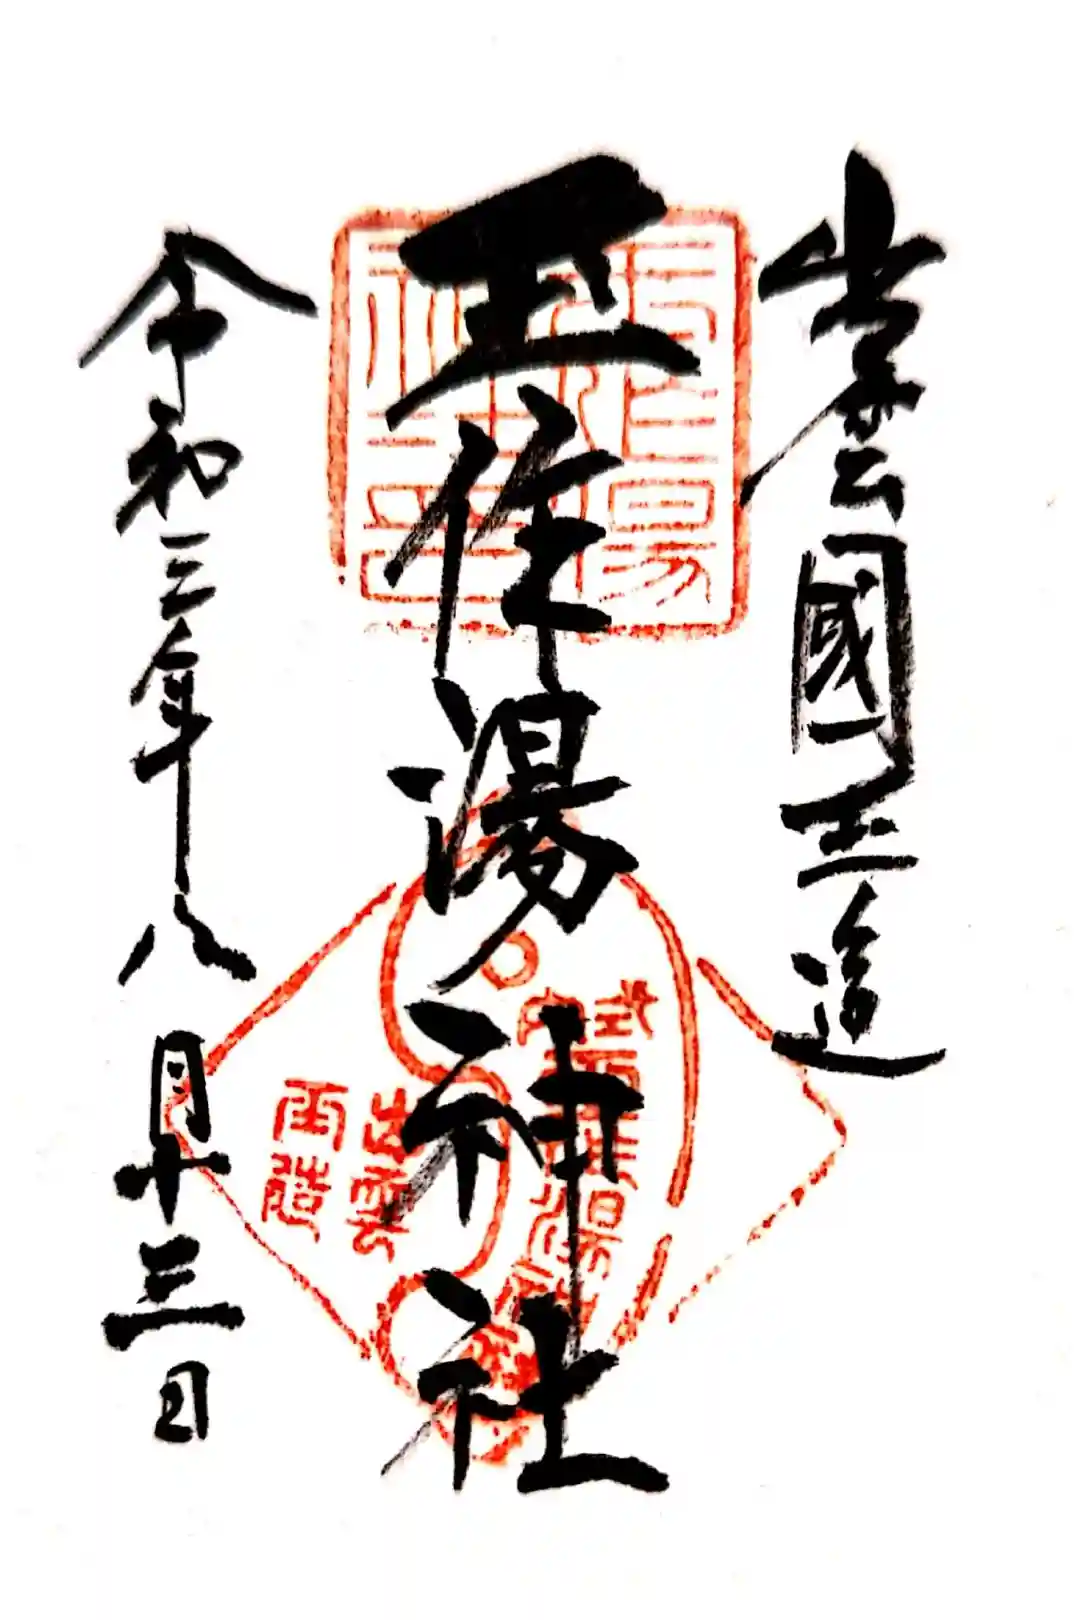 出雲國玉造
玉作湯神社
令和三年八月十三日
玉作湯
神社之印
式内
玉作湯神社
出雲
玉造